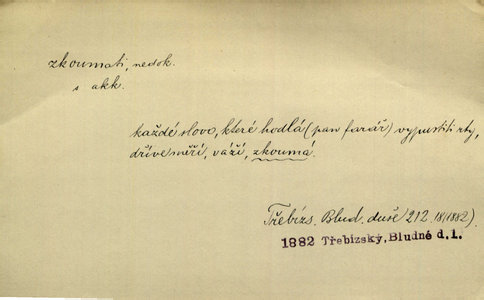 zkoumati, nedok.
s akk.
každé slovo, které hodlá (pan farář) vypustiti rty,
dříve měří, váží, zkoumá.
Třebízs. Blud. duše 212 18(1882).
1882 Třebízský, Bludné d. 1.